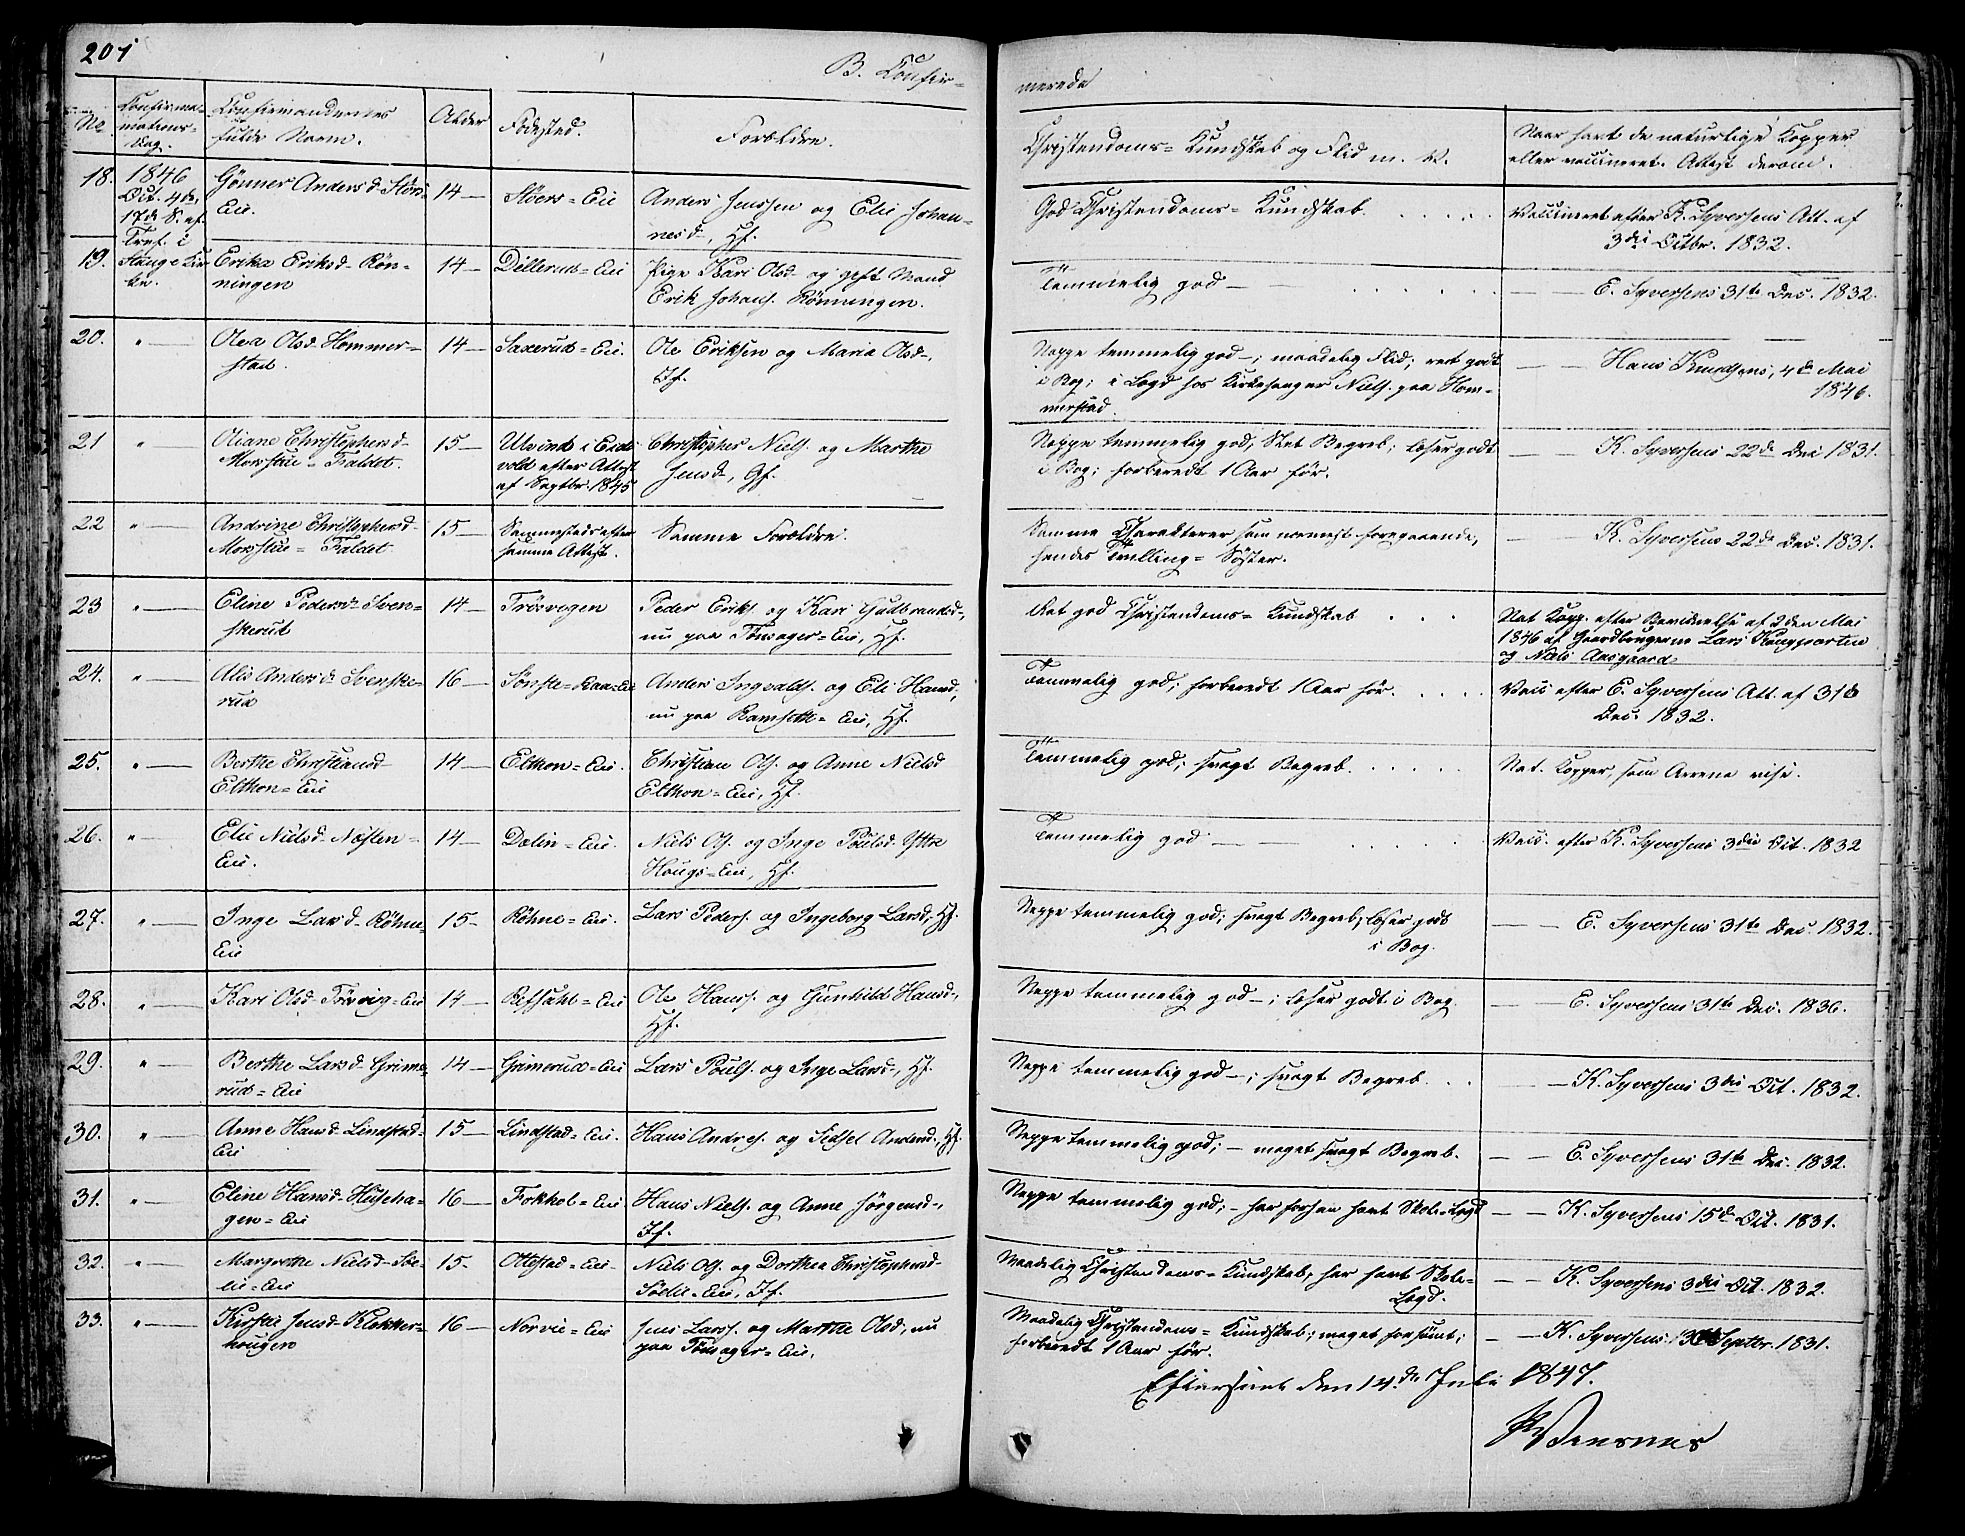 201
B. Confir-
merede
No
Confirma-
mations-
dag.
Confirmandernes
fulde Navn.
Alder
Fødested.
Forældre.
Christendoms-Kundskab og Flid m. V.
Naar havt de naturlige Kopper
eller vaccineret. Attest derom.
18.
1846
Oct. 4de,
17de S. ef.
Tref. i
Stange Kir
ke.
Gønner Andersd. Størs-
Eie.
14 —
Støers-Eie
Anders Jenssen og Elie Johan-
nesd., Hf.
God Christendoms-Kundskab . . . . .
Vaccineret efter K. Syversens Att. af
3die Octbr. 1832.
19.
Erika Eriksd. Røn-
ningen
14 —
Dillerud-Eie
Pige Kari Olsd. og gift Mand
Erik Johans. Rønningen.
Temmelig god —
— — E. Syversens 31te Dec. 1832.
20.
" —
Olea Olsd. Hommer-
stad.
14 —
Saxerud-Eie.
Ole Eriksen og Maria Olsd.,
If.
Neppe temmelig god —; maadelig Flid; ret godt
i Bog; i Legd hos Kirkesanger Niels. paa Hom-
merstad.
— — Hans Knudsens, 4de Mai
1846.
21
" —
Oliane Christophersd.
Morstue-Faldet.
15 —
Ulvind i Eids
vold efter Attest
af Septbr. 1845
Christopher Niels. og Marthe
Jensd., Gf.
Neppe temmelig god, slet Begreb; læser godt
i Bog; forberedt 1 Aar før.
— — K. Syversens 22de Dec 1831.
22
" —
Andrine Christophersd.
Morstue-Faldet
15 —
Sammesteds efter
samme Attest.
Samme Forældre.
Samme Charakterer som nærmest foregaaende,
hendes Tvilling-Søster.
— K. Syversens 22de Dec. 1831.
23
" —
Eline Pedersd. Sven-
skerud
14 —
Frøsvogen
Peder Eriks. og Kari Gudbrandsd.,
nu paa Tomager-Eie, Hf.
Ret god Christendoms-Kundskab . . .
Nat. Kopp. efter Bevidnelse af 2den Mai
1846 af Gaardbrugerne Lars Kongparten
og Niels Aasgaard
24.
" —
Alis Andersd. Svenske-
rud
16 —
Anders Ingvalds. og Eli Hansd.,
nu paa Ramseth-Eie, Hf.
Temmelig god; forberedt 1 Aar før. . . . .
Vacc. efter E. Syversens Att. af 31te
Dec. 1832.
25.
" —
Berthe Christiansd
Elthon-Eie
14 —
Elthon-Eie.
Christian Ols. og Anne Nielsd
Elthon-Eie, Hf.
Temmelig god; svagt Begreb. . . . . .
Nat. Kopper, som Arrene vise.
26.
" —
Elie Nielsd. Nøsten-
Eie.
14 —
Dælin-Eie.
Niels Ols. og Inge Poulsd. Yttre
Hougs-Eie, Hf.
Temmelig god — —
Vacc. efter K. Syversens 3die Oct. 1832
27.
" —
Inge Larsd. Røhne-
Eie
15 -
Røhne-Eie.
Lars Peders. og Ingeborg Larsd., Hf.
Neppe temmelig god; svagt Begreb, læser godt
i Bog.
— — E. Syversens 31te Dec. 1832.
28.
" —
Kari Olsd. Frøvig-Eie
14 —
Refsahl-Eie
Ole Hanss. og Gunhild Hansd.,
Hf.
Neppe temmelig god —; læser godt i Bog.
— — E. Syversens 31te Dec. 1836.
29.
" —
Berthe Larsd. Grime-
rud-Eie
14 —
Grimerud-Eie
Lars Pouls. og Inge Larsd., Hf.
Neppe temmelig god —; svagt Begreb. . . .
— K. Syversens 3die Oct. 1832.
30.
" —
Anne Hansd. Lindstad-
Eie
15 —
Lindstad-Eie.
Hans Andres. og Sidsel Andersd., Hf.
Neppe temmelig god; — meget svagt Begreb.
— — E. Syversens 31te Dec. 1832.
31.
" —
Eline Hansd. Huseha-
gen-Eie
16 —
Fokhol-Eie
Hans Niels. og Anne Jørgensd.,
If.
Neppe temmelig god; — har forhen havt Skole-Legd
— — K. Syversens 15de Oct. 1831.
32.
" —
Margrethe Nielsd. Søe-
lie-Eie
15 -
Ottestad-Eie
Niels Ols. og Dorthea Christophersd.
Sølie-Eie, If.
Maadelig Christendoms-Kundskab, har havt Skole-
Legd.
— — K. Syversens 3die Oct. 1832.
33.
" —
Kirstie Jensd. Klokker-
hougen
16 —
Norvie-Eie
Jens Larss. og Marthe Olsd., nu
paa Tomager-Eie.
Maadelig Christendoms-Kundskab; meget forsømt;
forberedt 1 Aar før.
— — K. Syversens Septbr. 1831.
Efterseet den 14de Juli 1847.